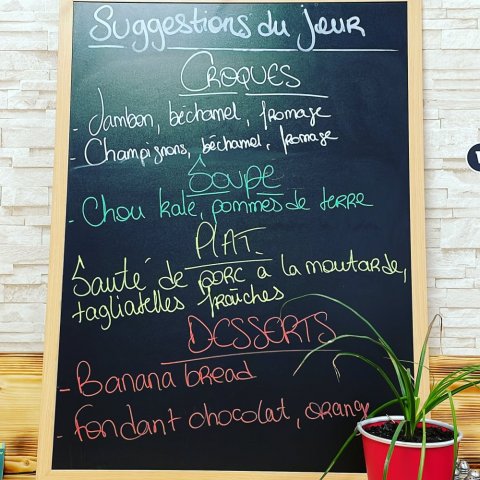 Suggestions du jour
CROQUES
- Jambon, béchamel, fromage
- Champignons, béchamel, fromage
Soupe
- Chou kale, pommes de terre
PLAT.
Sauté de porc à la moutarde,
tagliatelles fraîches
DESSERTS
- Banana bread
- Fondant chocolat, orange